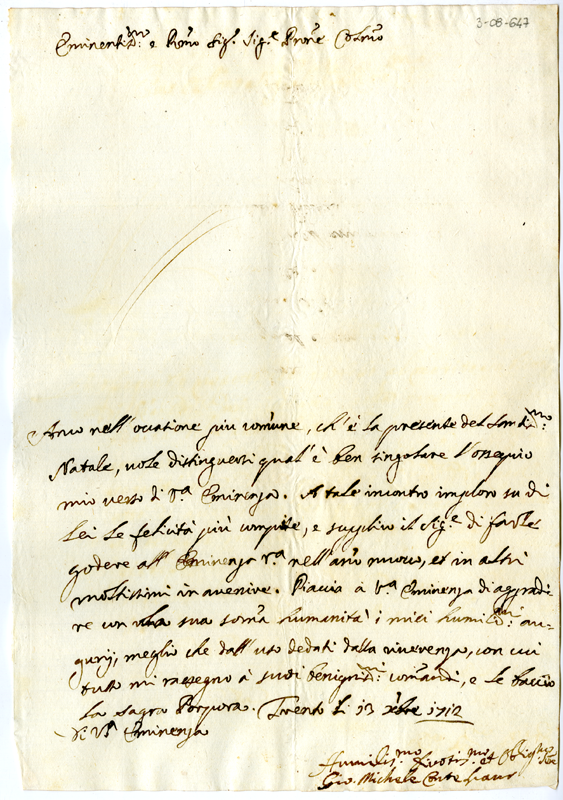 3-08-647
Eminentis:mo e Rmo Sig.r Sig.re Prone Colmo
Anco nell' occasione più comune, ch' è la presente del Santis:mo
Natale, vole distinguersi qual' è ben singolare l' ossequio
mio verso di V.a Eminenza. A tale incontro imploro su di
Lei le felicità più compite, e supplico il Sig.re di farle
godere all' Eminenza V.a nell' anno nuovo, et in altri
moltissimi in avenire. Piaccia à V.a Eminenza di aggradi-
re con la sua somma humanità i miei humilis:mi au-
gurij, meglio che dall' uso dedati dalla riverenza, con cui
tutto mi rassegno à suoi benignis:mi comandi, e le baccio
la sagra Porpora. Trento li 13 xbre 1712
Di V.a Eminenza
Humilis:mo Devotis:mo et Oblig:mo
Gio. Michele Conte